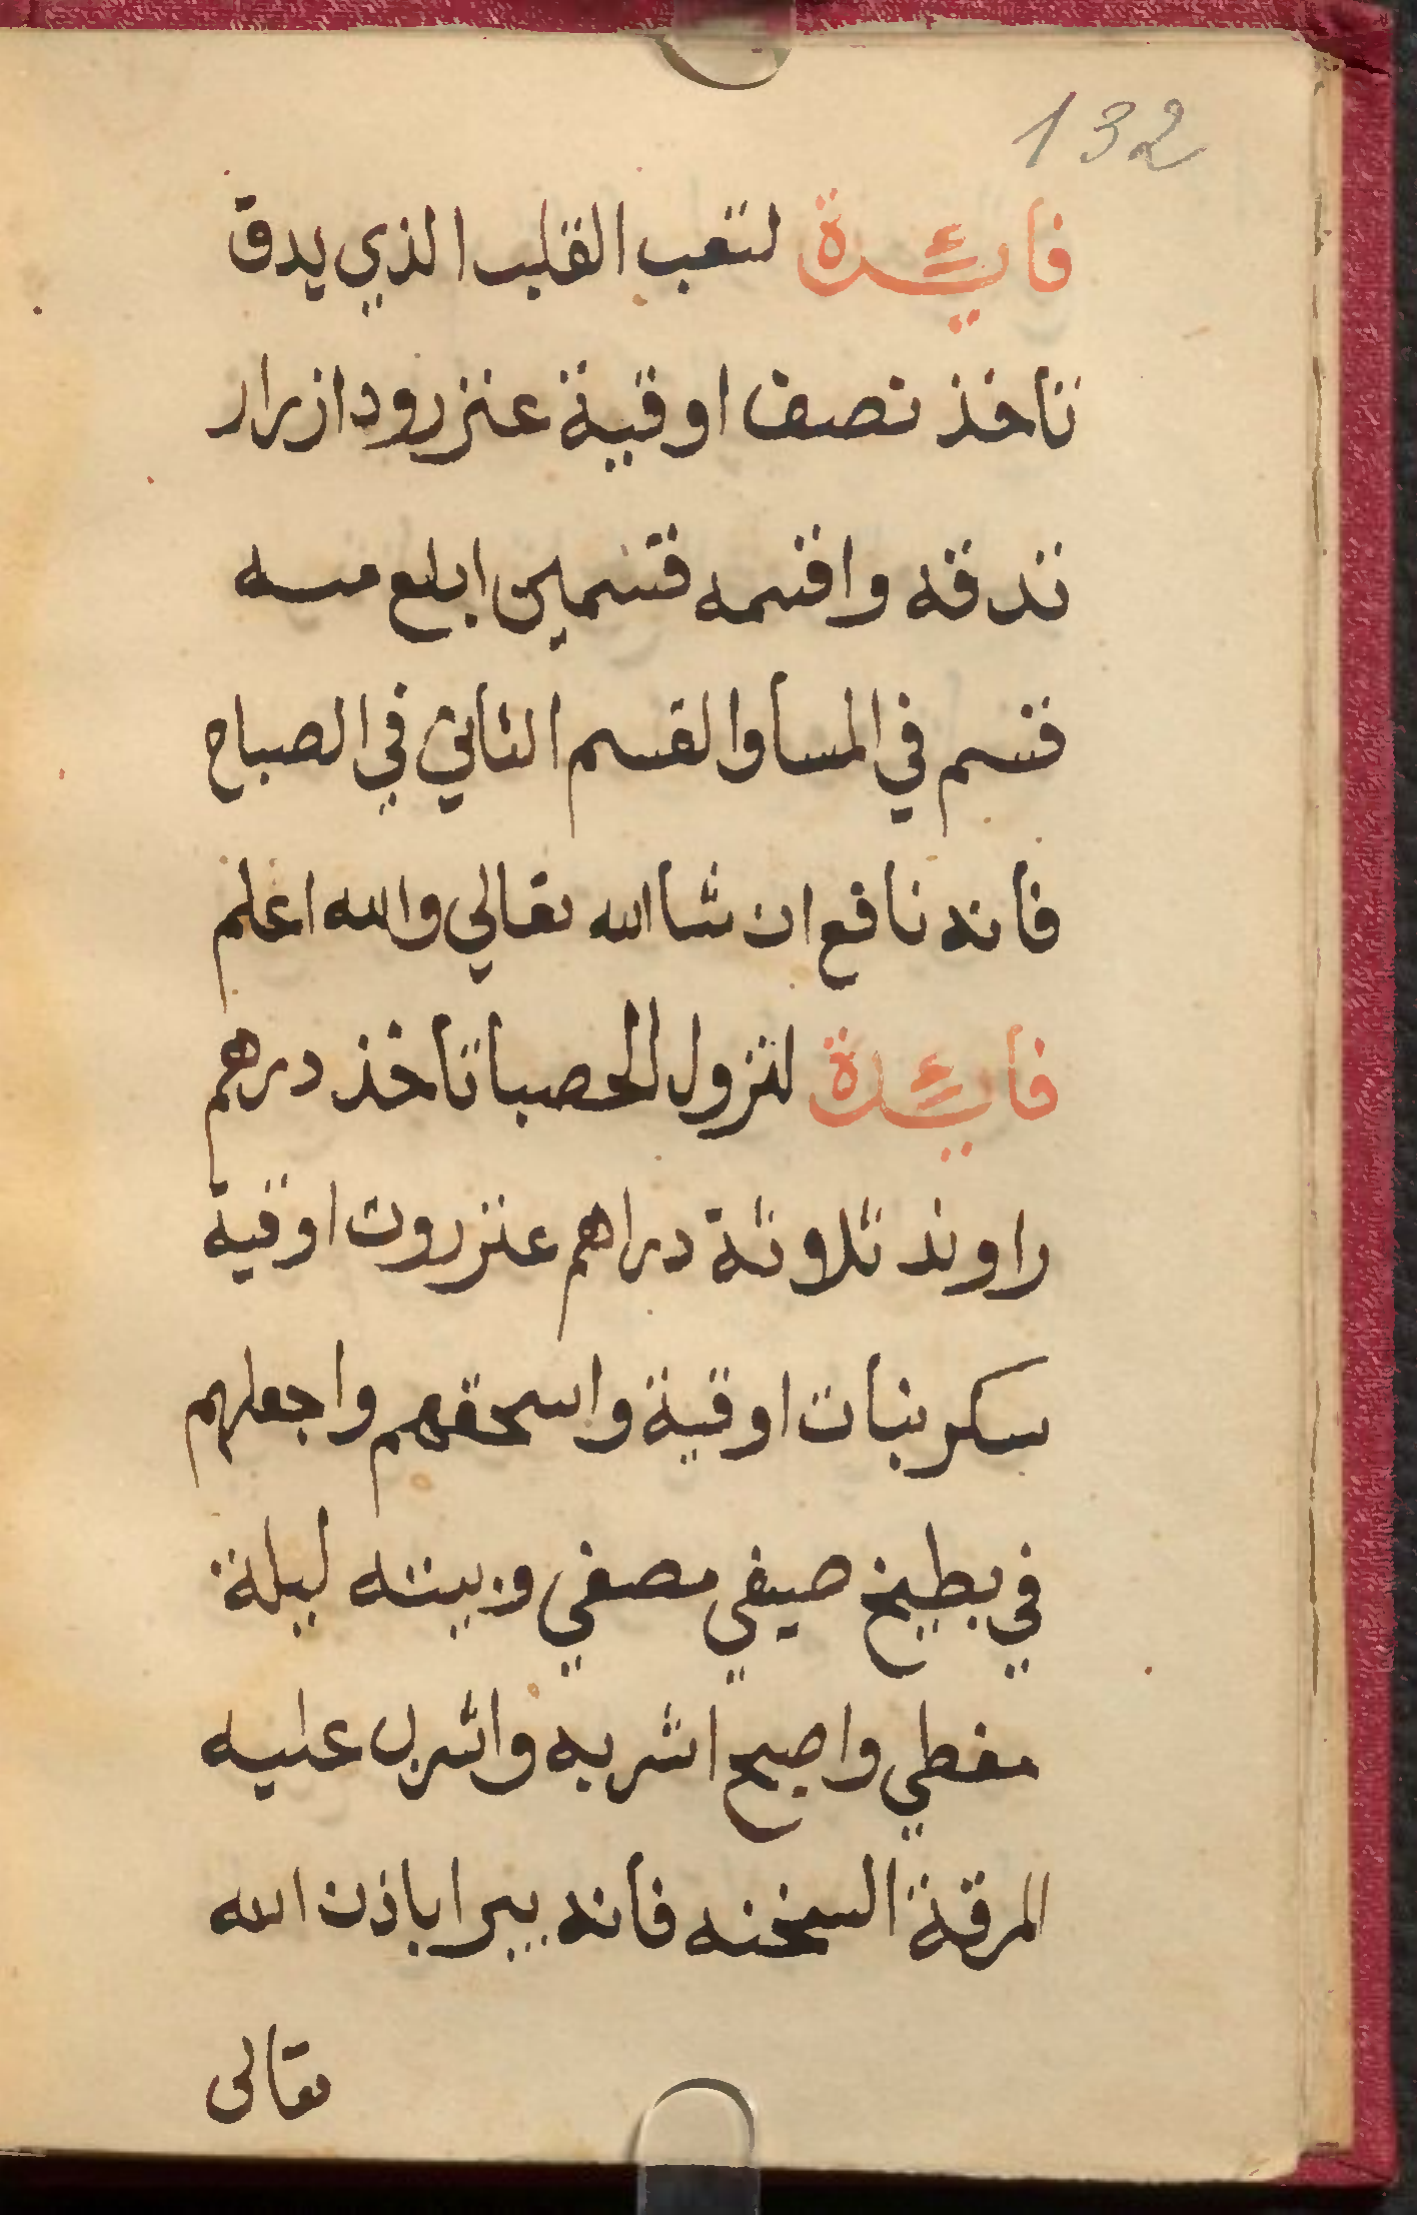 132
فايئدة لتعب القلب الذي يدق
تاخذ نصف اوقية عنزرود ازرار
تدقه واقسمه قسمين ابلع منه
قسم في المسا والقسم الثاني في الصباح
فانه نافع ان شا الله تعالي والله اعلم
فايئدة لنزول الحصبا تاخذ درهم
راوند ثلاوثة دراهم عنزروت اوقية
سكر نبات اوقية واسحقهم واجعلهم
في بطيخ صيفي مصفي وبيته ليلة
مغطي واصبح اشربه واشرب عليه
المرقة السخنه فانه يبرا باذن الله
تعالى